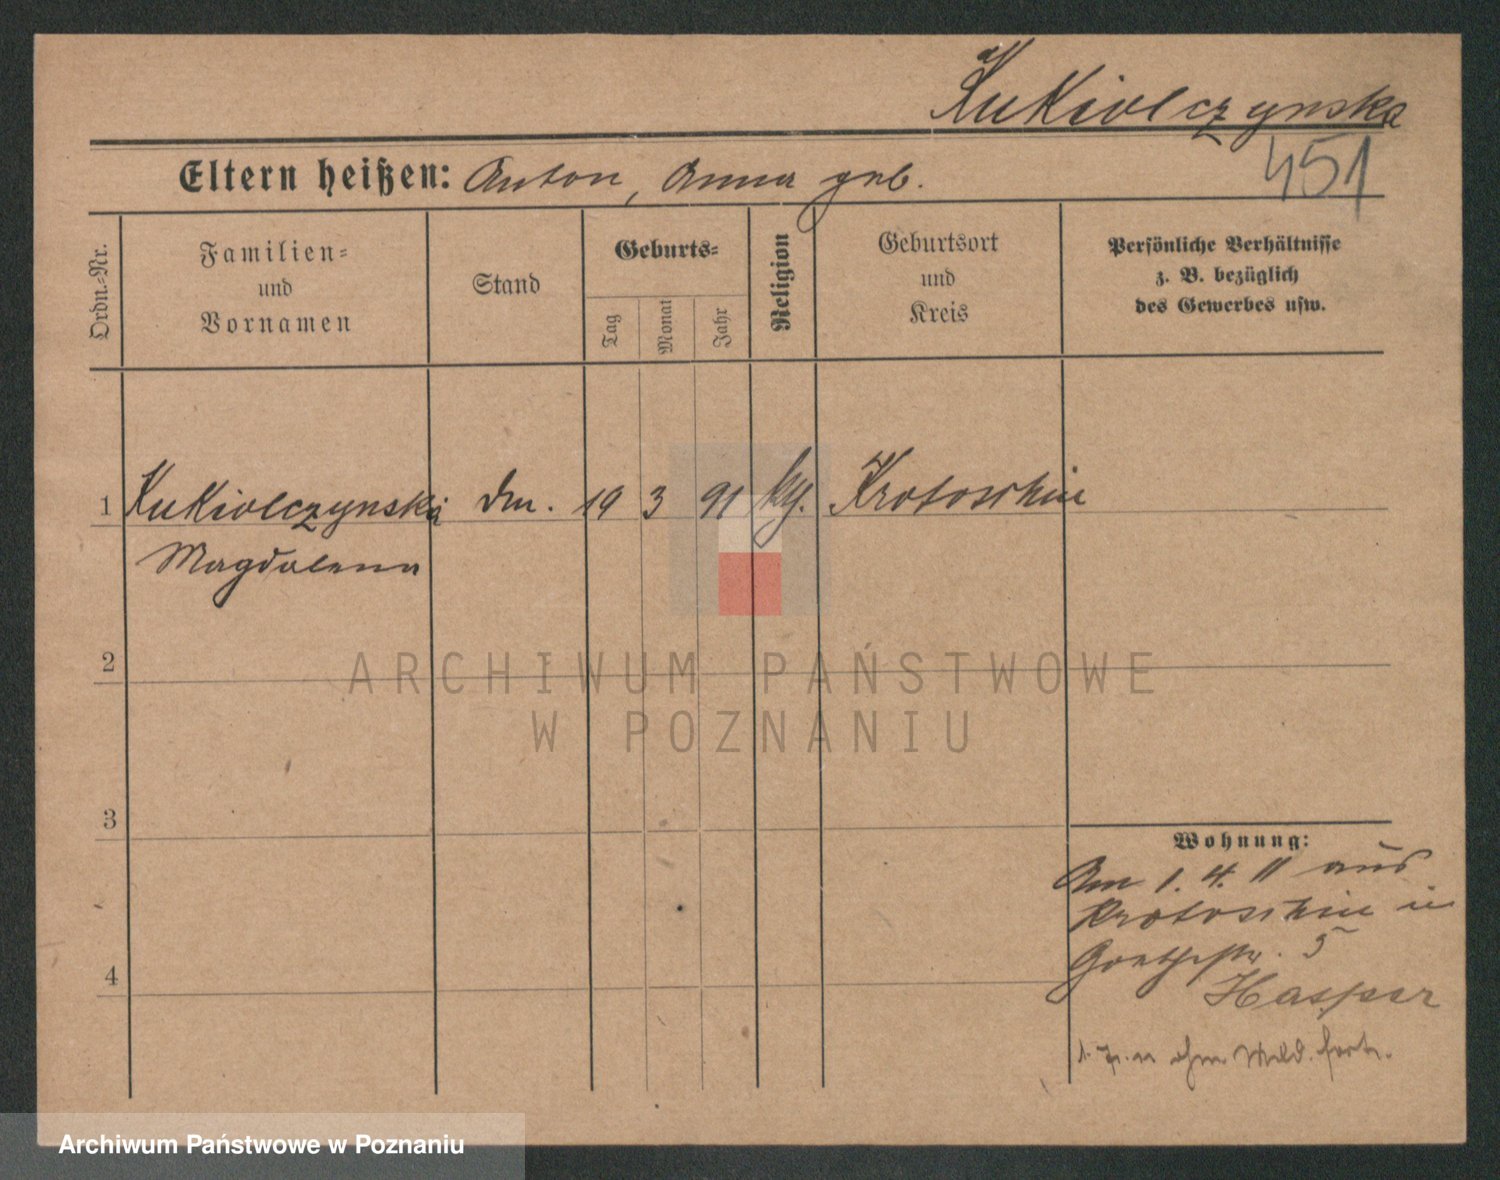 Kukiolczynska
451
Eltern heißen: Anton, Anna geb.
Ordn.-Nr.
Familien-
und
Vornamen
Stand
Geburts-
Tag
Monat
Jahr
Religion
Geburtsort
und
Kreis
Persönliche Verhältnisse
z. B. bezüglich
des Gewerbes usw.
1 Kukiolczynska 19 3 91 Krotoschin
Magdalena
2
3
4
Wohnung:
Am 1. 4. 11 aus
Krotoschin in
Goethestr. 5
ohne Meld. fort.
ARCHIWUM PAŃSTWOWE
W POZNANIU
Archiwum Państwowe w Poznaniu